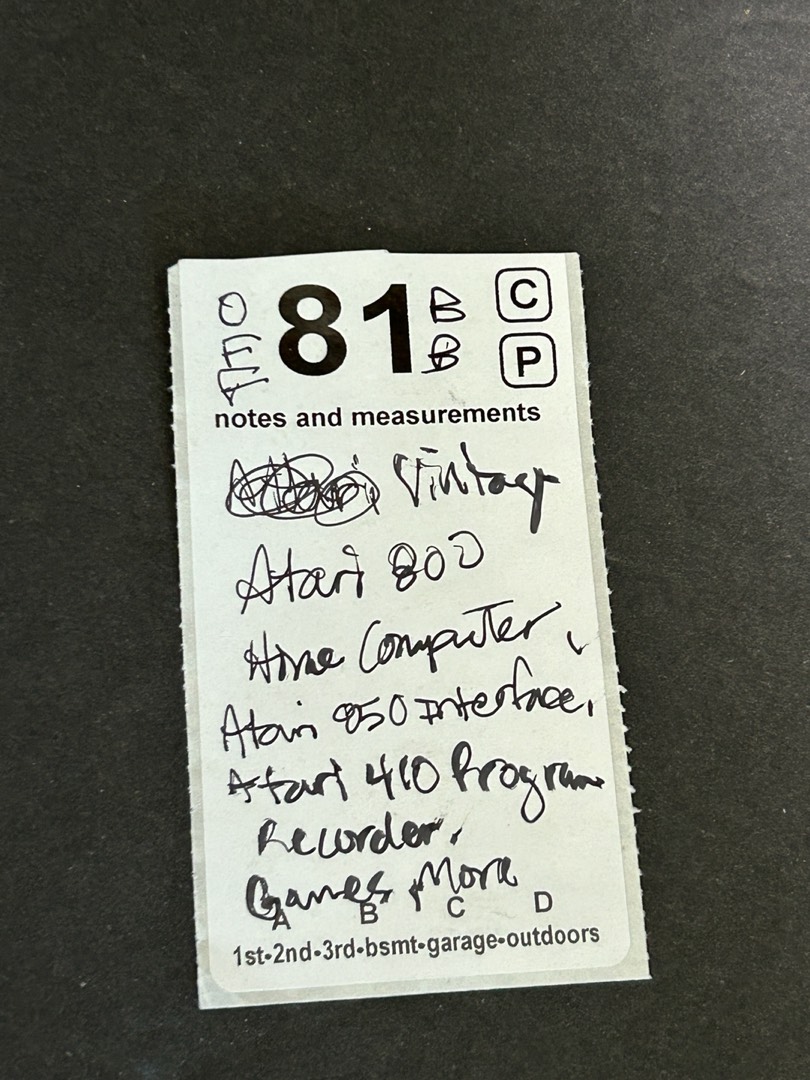 O
81
B
B
C
P
notes and measurements
Vintage
Atari 800
Home Computer,
Atari 850 Interface,
Atari 410 Program
Recorder,
Games, More
A B C D
1st•2nd•3rd•bsmt•garage•outdoors